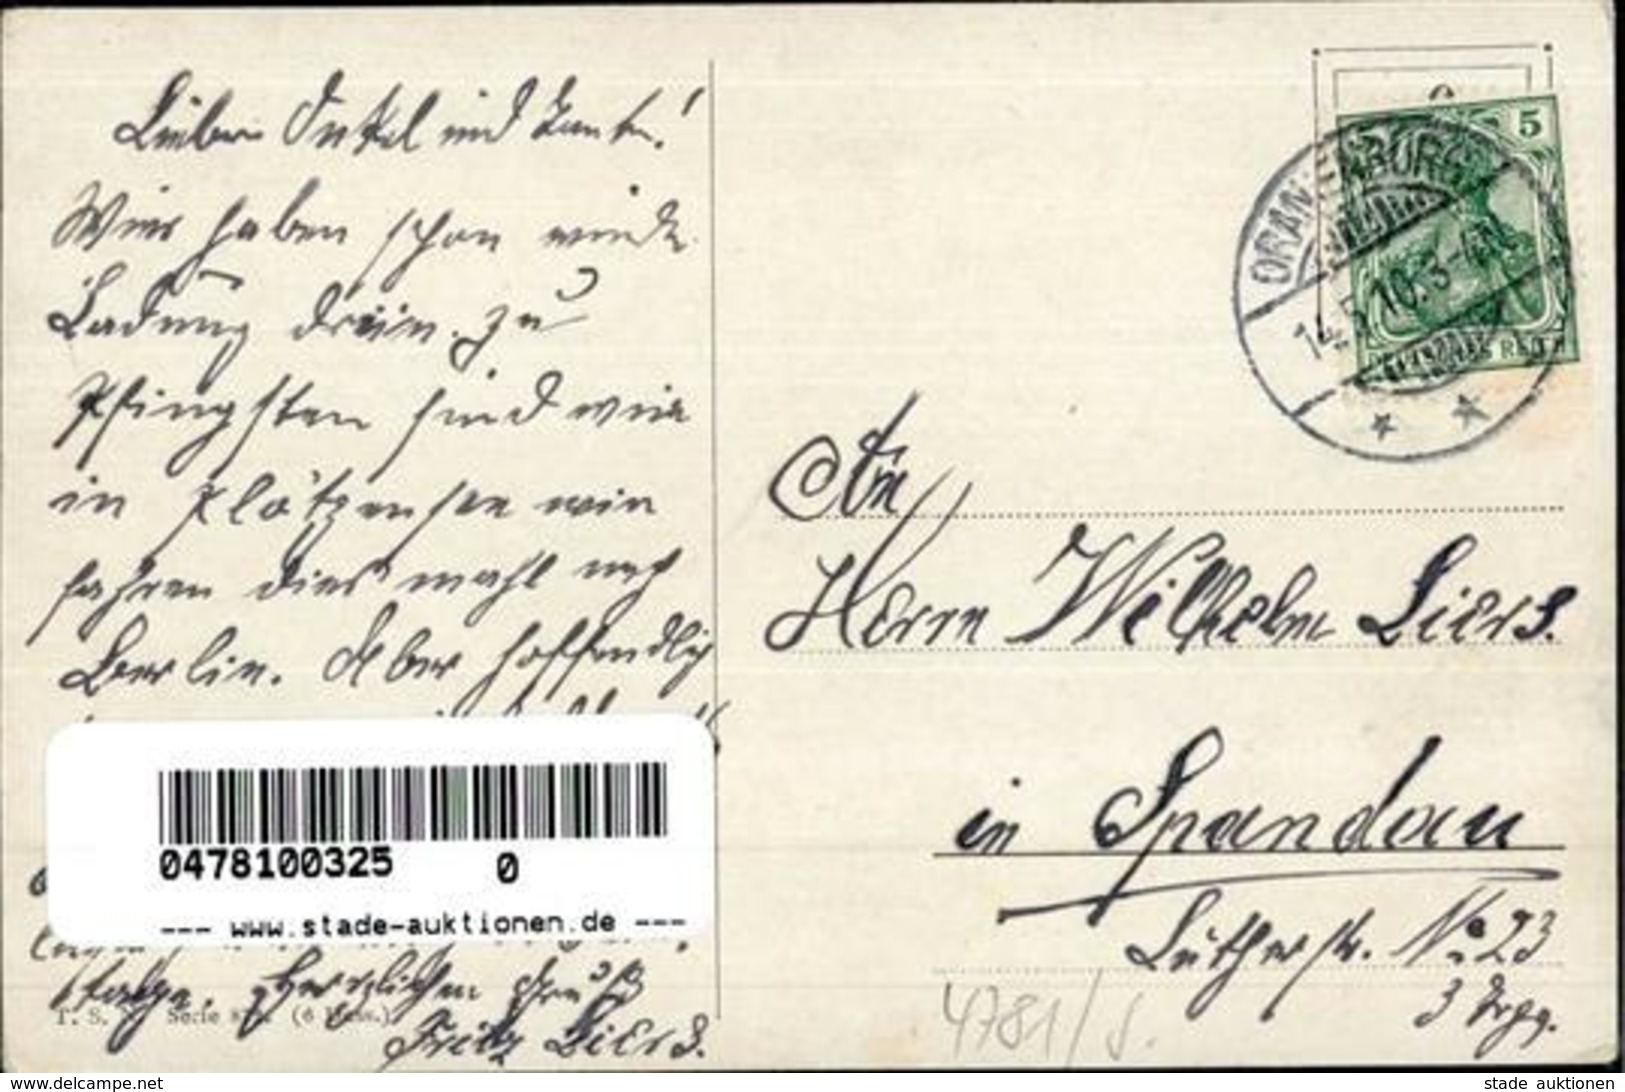 Lieber Onkel und Tante!
Wir haben schon wieder
Ladung drin. Zu
Pfingsten sind wir
in Plötzensee wir
fahren dies mahl nach
Berlin. Aber hoffendlich
Herzlichen Gruß
Fritz Liers.
T. S. N. Serie (6 Dess.)
0478100325 0
--- www.stade-auktionen.de ---
5
ORANIENBURG
14.5.10.3-4N.
DEUTSCHES REICH
An
Herrn Wilhelm Liers.
in Spandau
Lutherstr. No 23
3 Trpp.
4781/S.
www.delcampe.net
stade auktionen